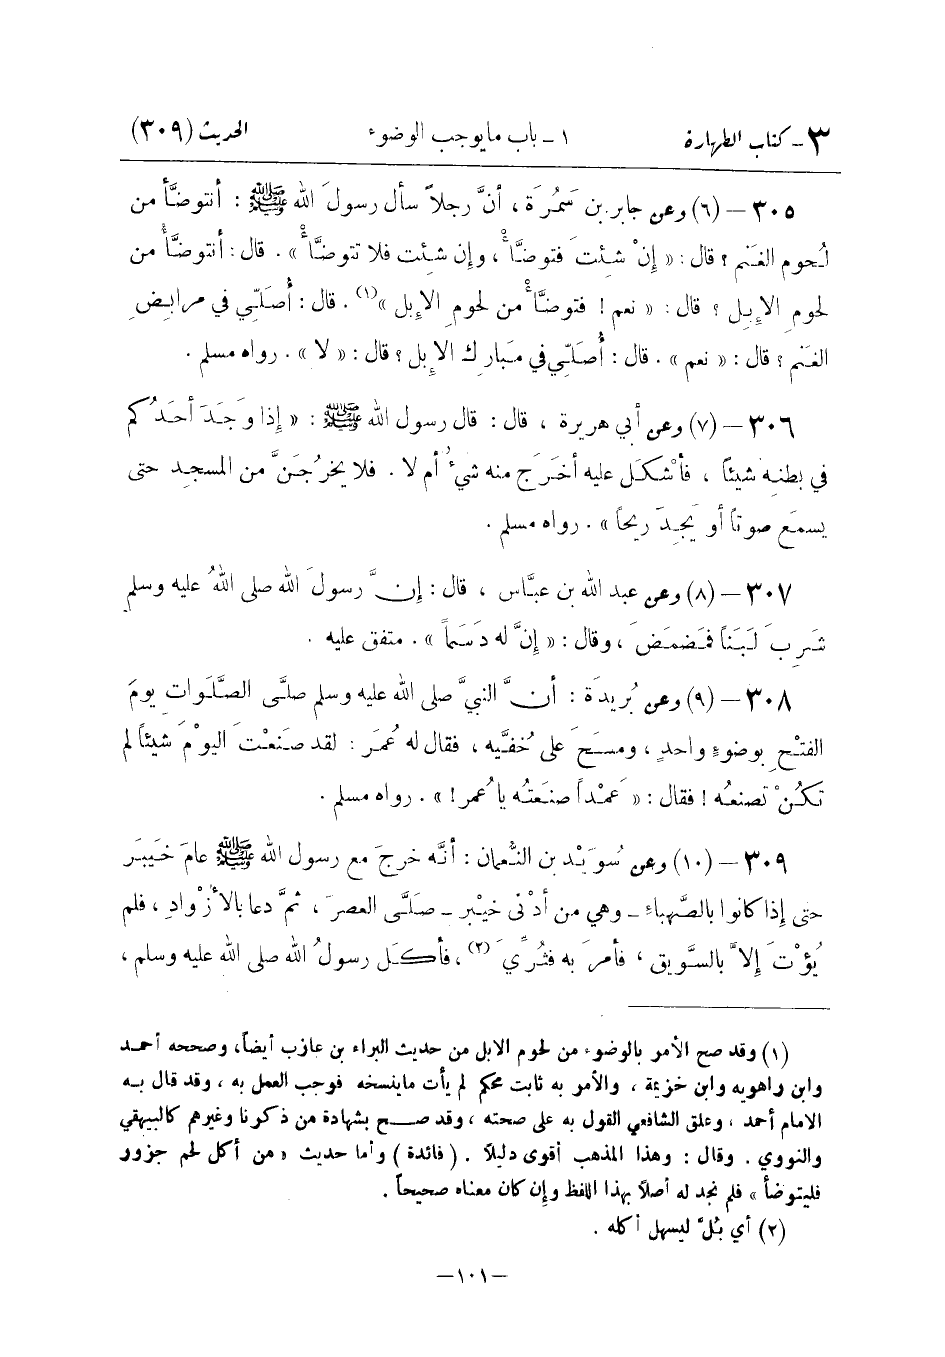 ٣ - كتاب الطهارة ١ - باب ما يوجب الوضوء الحديث (٣٠٩)
٣٠٥ — (٦) وعن جابر بن سَمُرَة ، أنَّ رجلاً سأل رسولَ الله ﷺ : أنتوضَّأ من
لُحوم الغَنَم ؟ قال : « إنْ شئتَ فتوضَّأْ ، وإن شئت فلا تتوضَّأْ » . قال : أنتوضَّأُ من
لحومِ الإِبِل ؟ قال : « نعم ! فتوضَّأْ من لحومِ الإِبل »(١) . قال : أُصَلّي في مرابِضِ
الغَنم ؟ قال : « نعم » . قال : أُصَلّي في مَبارِك الإِبل ؟ قال : « لا » . رواه مسلم .
٣٠٦ — (٧) وعن أبي هريرة ، قال : قال رسول الله ﷺ : « إذا وَجَدَ أحَدُكم
في بطنِه شيئاً ، فأشْكَل عليه أخَرَج منه شيءٌ أم لا . فلا يخرُجَنَّ من المسجِد حتى
يسمَع صوتاً أو يَجِدَ ريحاً » . رواه مسلم .
٣٠٧ — (٨) وعن عبد الله بن عبَّاس ، قال : إنَّ رسولَ الله صلى اللهُ عليه وسلم
شَرِبَ لَبَناً فمَضمَضَ ، وقال : « إنَّ له دَسَماً » . متفق عليه .
٣٠٨ — (٩) وعن بُريدَة : أنَّ النبيَّ صلى الله عليه وسلم صلَّى الصَّلَوات يومَ
الفتْحِ بوضوءٍ واحدٍ ، ومسَحَ على خُفَّيه ، فقال له عُمَر : لقد صنَعْتَ اليوْمَ شيئاً لم
تكُنْ تصنعُه ! فقال : « عَمْداً صنَعتُه يا عُمر ! » . رواه مسلم .
٣٠٩ — (١٠) وعن سُوَيْد بن النُّعمان : أنَّه خرجَ مع رسول الله ﷺ عامَ خَيبَر
حتى إذا كانوا بالصَّهباءِ - وهي من أدْنى خيْبر - صلَّى العصرَ ، ثمَّ دعا بالأزْوادِ ، فلم
يُؤْتَ إلاَّ بالسَّويق ، فأمرَ به فثُرِّيَ (٢) ، فأكَل رسولُ الله صلى الله عليه وسلم ،
(١) وقد صح الأمر بالوضوء من لحوم الابل من حديث البراء بن عازب أيضاً، وصححه أحمد
وابن راهويه وابن خزيمة ، والأمر به ثابت محكم لم يأت ماينسخه فوجب العمل به ، وقد قال به
الامام أحمد ، وعلق الشافعي القول به على صحته ، وقد صح بشهادة من ذكرنا وغيرهم كالبيهقي
والنووي . وقال : وهذا المذهب أقوى دليلاً . ( فائدة ) وأما حديث « من أكل لحم جزور
فليتوضأ » فلم نجد له أصلاً بهذا اللفظ وإن كان معناه صحيحاً .
(٢) أي بُلَّ ليسهل أكله .
—١٠١—